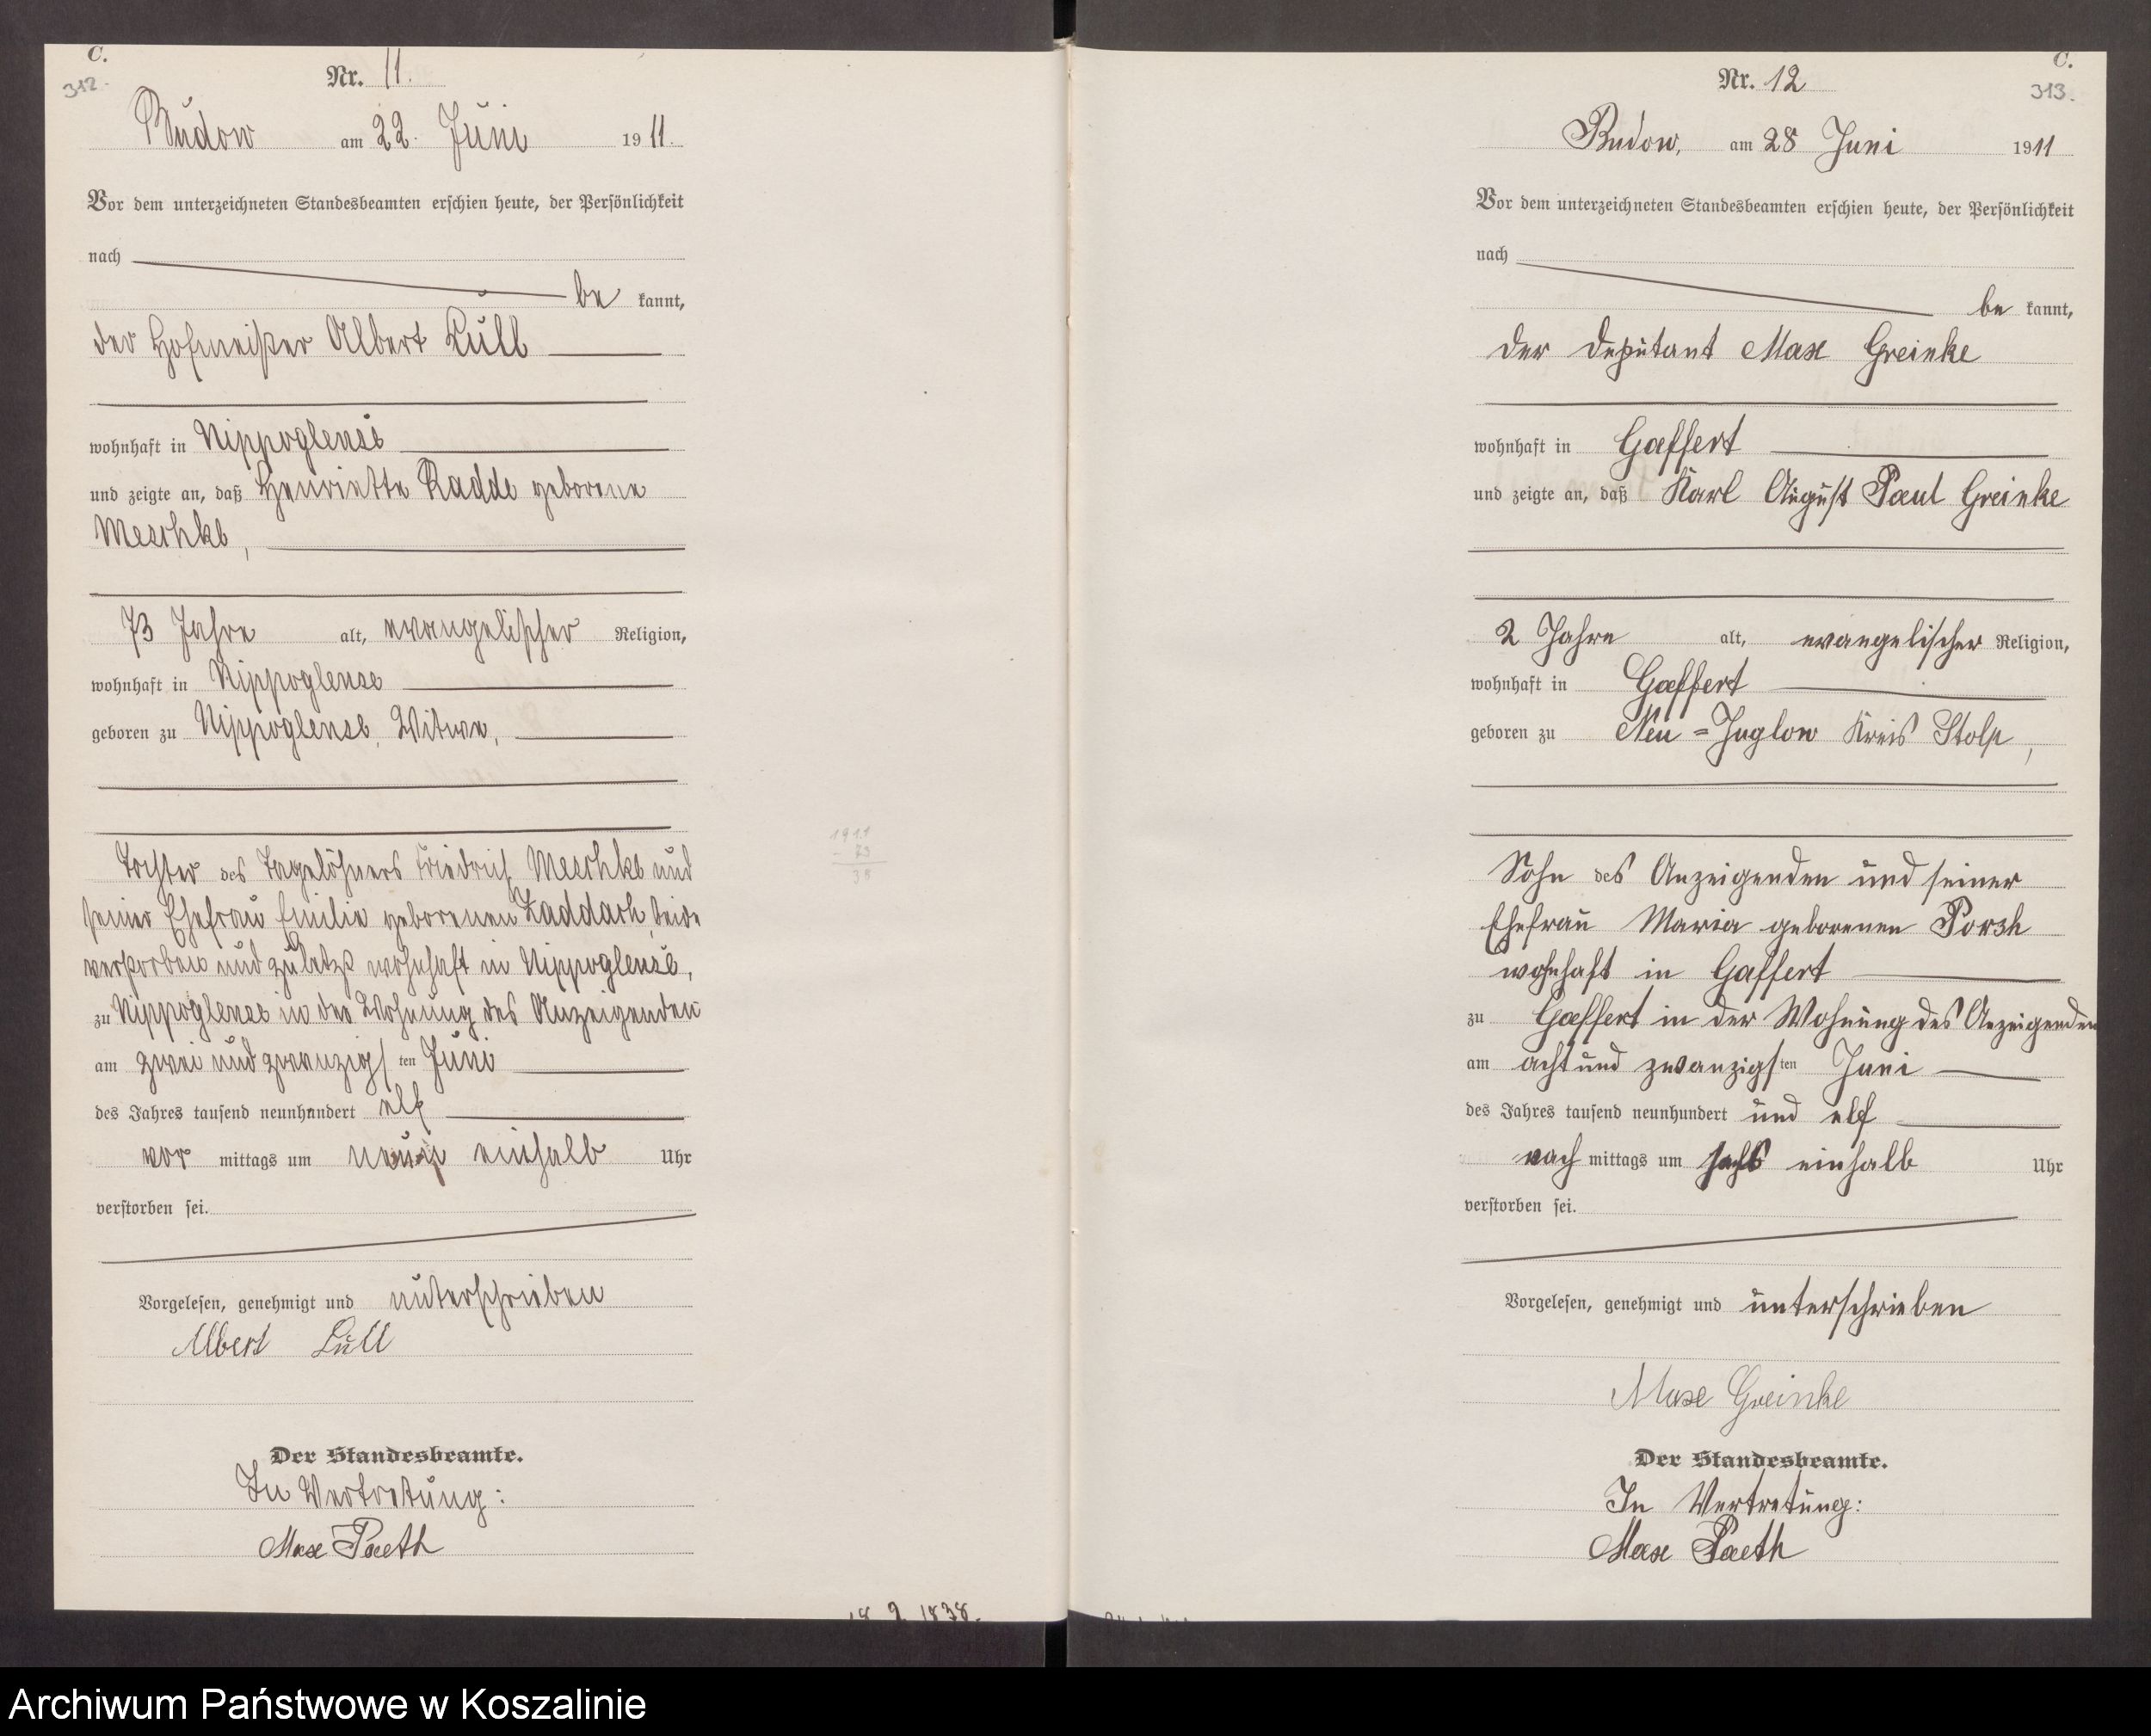 C.
312.
Nr. 11.
Budow am 22. Juni 1911.
Vor dem unterzeichneten Standesbeamten erschien heute, der Persönlichkeit
nach
be kannt,
der Hofmeister Albert Lüll
wohnhaft in Nippoglense
und zeigte an, daß Henriette Radde geborene
Meschke,
73 Jahre alt, evangelischer Religion,
wohnhaft in Nippoglense
geboren zu Nippoglense, Witwe,
Tochter des Tagelöhners Friedrich Meschke und
seiner Ehefrau Emilie geborenen Zaddach, beide
verstorben und zuletzt wohnhaft in Nippoglense,
zu Nippoglense in der Wohnung des Anzeigenden
am zwei und zwanzigsten Juni
des Jahres tausend neunhundert elf
vor mittags um neun einhalb Uhr
verstorben sei.
Vorgelesen, genehmigt und unterschrieben
Albert Lüll
Der Standesbeamte.
In Vertretung:
Max Paeth
1911
- 73
38
18 2 1838.
C.
313.
Nr. 12
Budow, am 28 Juni 1911
Vor dem unterzeichneten Standesbeamten erschien heute, der Persönlichkeit
nach
be kannt,
der Deputant Max Greinke
wohnhaft in Gaffert
und zeigte an, daß Karl August Paul Greinke
2 Jahre alt, evangelischer Religion,
wohnhaft in Gaffert
geboren zu Neu=Juglow Kreis Stolp,
Sohn des Anzeigenden und seiner
Ehefrau Maria geborenen Porsh
wohnhaft in Gaffert
zu Gaffert in der Wohnung des Anzeigenden
am acht und zwanzigsten Juni
des Jahres tausend neunhundert und elf
nach mittags um sechs einhalb Uhr
verstorben sei.
Vorgelesen, genehmigt und unterschrieben
Max Greinke
Der Standesbeamte.
In Vertretung:
Max Paeth
Archiwum Państwowe w Koszalinie